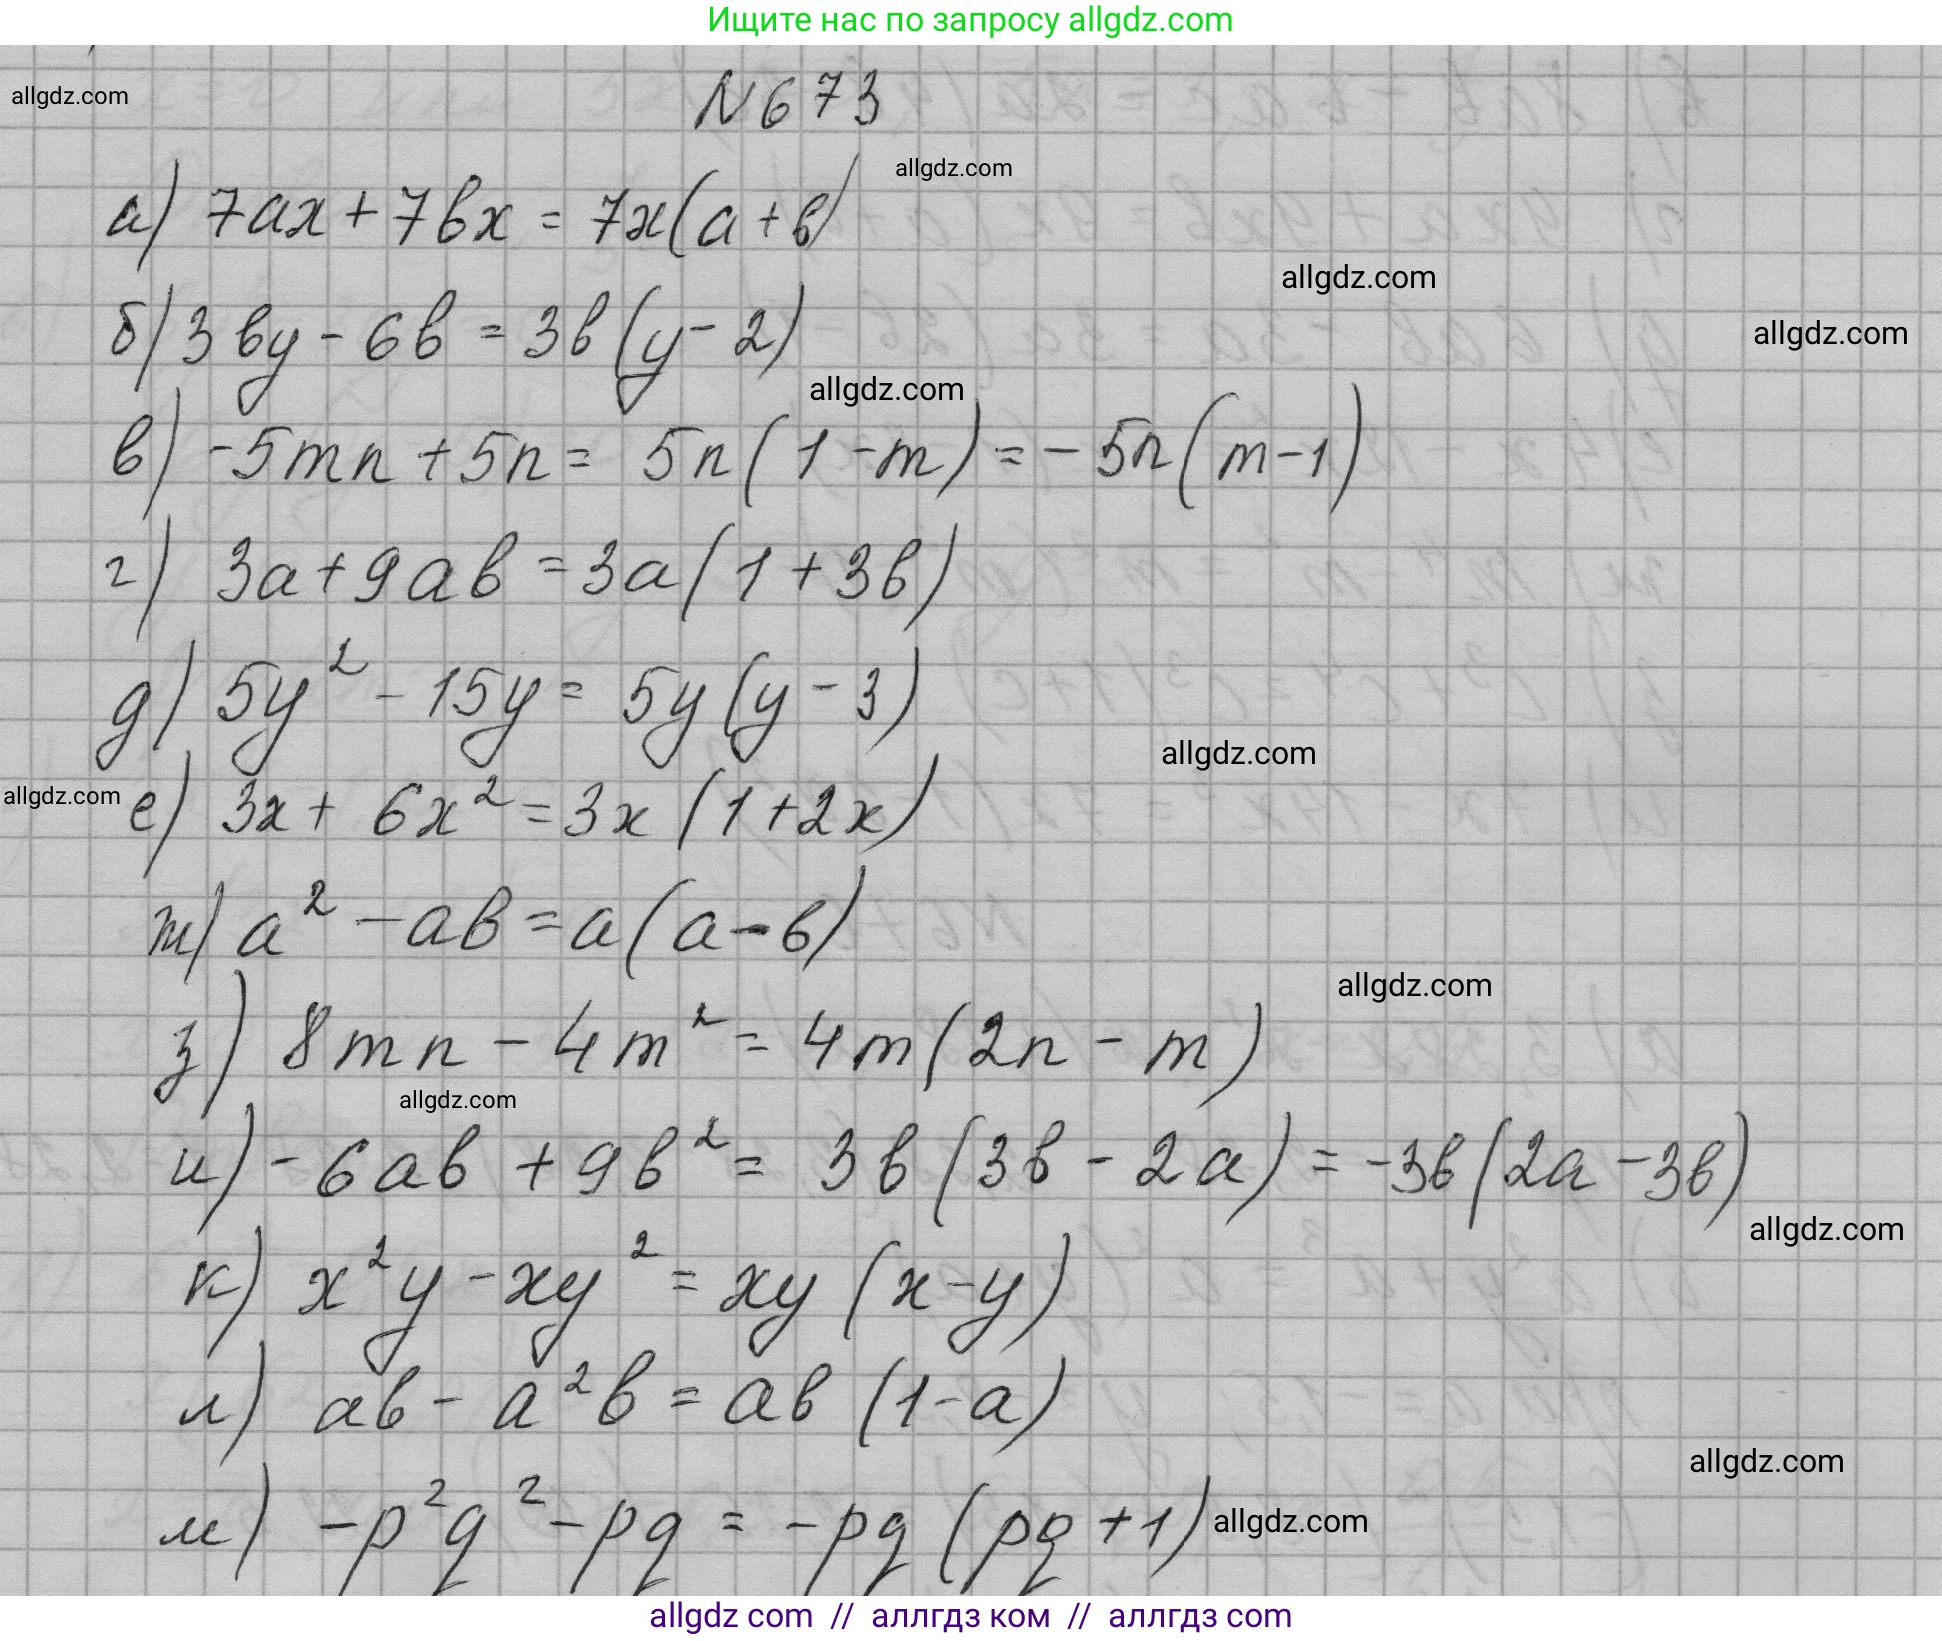 Ищите нас по запросу allgdz.com
allgdz.com
N673
allgdz.com
а) 7ax + 7bx = 7x(a + b)
allgdz.com
б) 3by - 6b = 3b(y - 2)
allgdz.com
allgdz.com
в) -5mn + 5n = 5n(1 - m) = -5n(m - 1)
г) 3a + 9ab = 3a(1 + 3b)
д) 5y² - 15y = 5y(y - 3)
allgdz.com
allgdz.com
е) 3x + 6x² = 3x(1 + 2x)
ж) a² - ab = a(a - b)
allgdz.com
з) 8mn - 4m² = 4m(2n - m)
allgdz.com
и) -6ab + 9b² = 3b(3b - 2a) = -3b(2a - 3b)
allgdz.com
к) x²y - xy² = xy(x - y)
л) ab - a²b = ab(1 - a)
allgdz.com
м) -p²q² - pq = -pq(pq + 1)
allgdz.com
allgdz com // аллгдз ком // аллгдз com